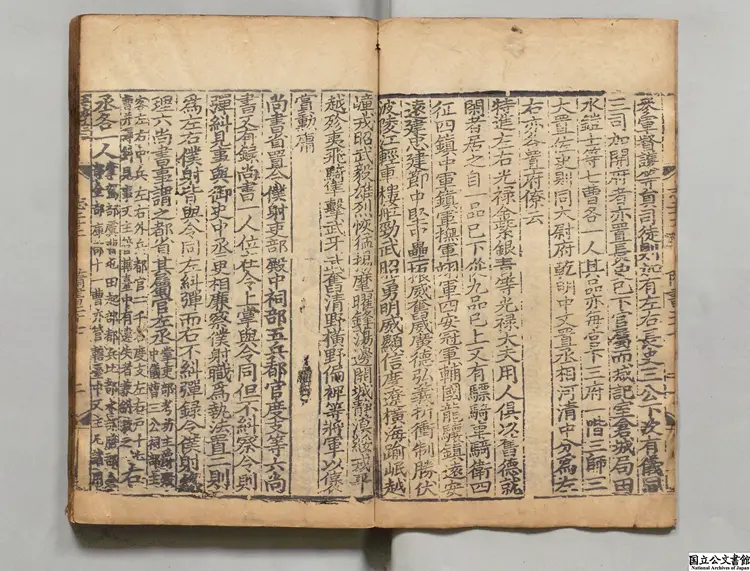 參軍督護等員司徒則加有左右長史三公下次有儀同
三司加開府者亦置長史已下官屬而減記室倉城局田
水鎧士等七曹各一人其品亦每官下三府一階三師二
大置佐史則同太尉府乾明中又置丞相河清中分為左
右亦各置府僚云
特進左右光祿金紫銀青等光祿大夫用人俱以舊德就
閑者居之自一品已下從九品已上又有驃騎車騎衛四
征四鎮中軍鎮軍撫軍四軍四安冠軍輔國龍驤鎮遠安
遠建忠建節中堅中壘振威奮威廣德弘義折衝制勝伏
波陵江輕車樓船勁武昭勇明威顯信度遼橫海踰岷越
嶂戎昭武毅雄烈恢猛揚麾曜鋒蕩邊開城靜漠綏戎平
越殄夷飛騎隼擊武牙武奮清野橫野偏裨等將軍以褒
賞勳庸
尚書省置令僕射吏部殿中祠部五兵都官度支等六尚
書又有錄尚書一人位在令上掌與令同但不糾察令則
彈糾見事與御史中丞更相廉察僕射職為執法置二則
為左右僕射皆與令同左糾彈而右不糾彈錄令僕射總
理六尚書事謂之都省其屬官左丞
右
丞各一人
国立公文書館
National Archives of Japan